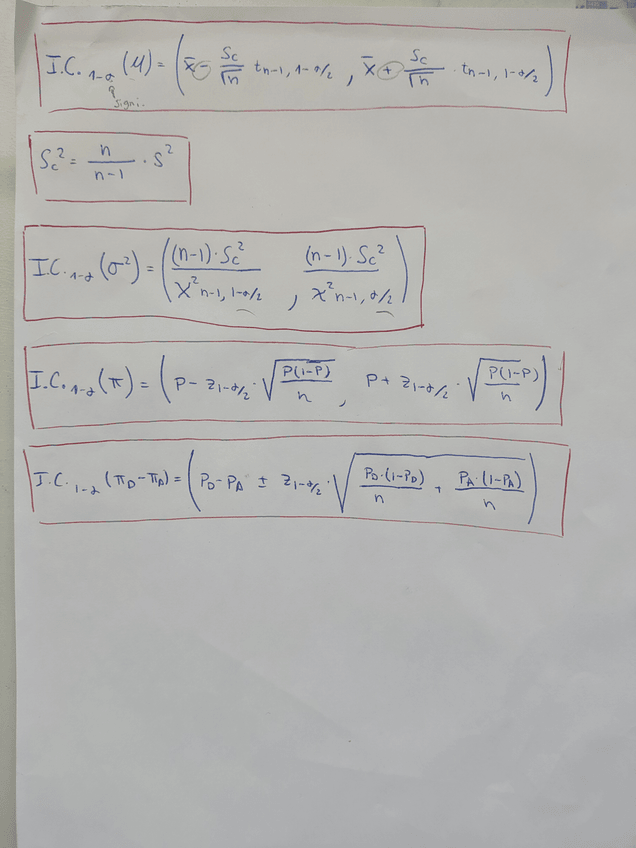 I.C. 1-α (μ) = ( x̄ - Sc/√n t n-1, 1-α/2 , x̄ + Sc/√n · t n-1, 1-α/2 )
signi.
Sc² = n/(n-1) · S²
I.C. 1-α (σ²) = ( (n-1)·Sc² / χ² n-1, 1-α/2 , (n-1)·Sc² / χ² n-1, α/2 )
I.C. 1-α (π) = ( P - z 1-α/2 · √(P(1-P)/n) , P + z 1-α/2 · √(P(1-P)/n) )
I.C. 1-α (πD - πA) = ( PD - PA ± z 1-α/2 · √( PD·(1-PD)/n + PA·(1-PA)/n ) )